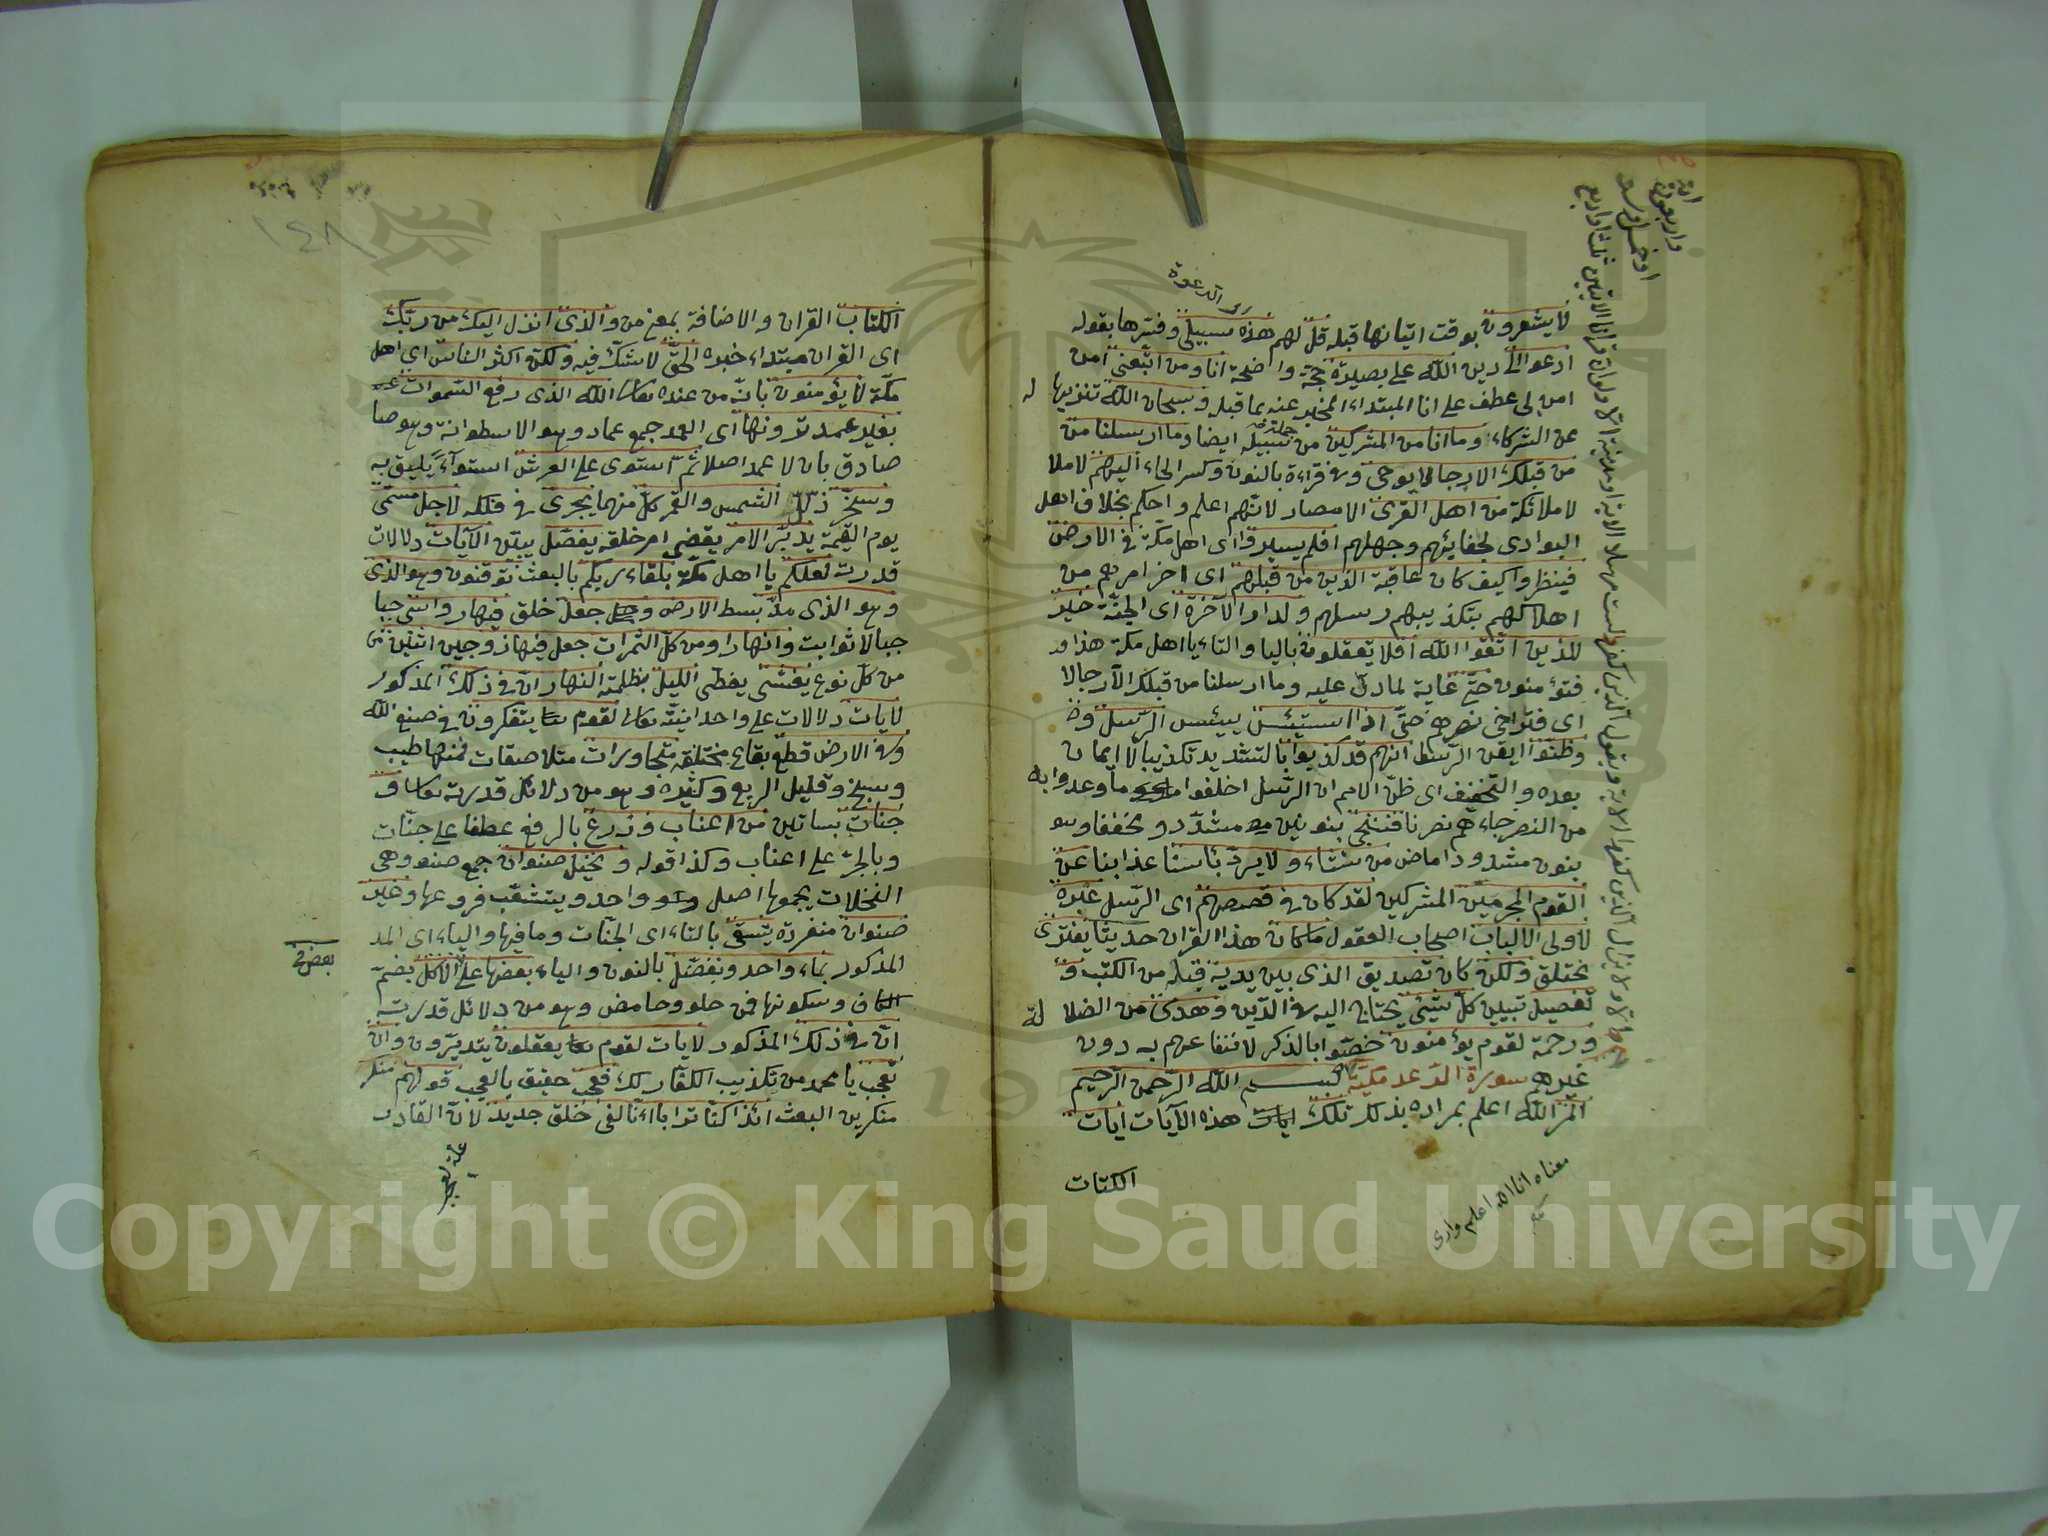 لا يشعرون بوقت اتيانها قبله قل لهم هذه سبيلى وفسرها بقوله
ادعو الى دين الله على بصيرة حجة واضحة انا ومن اتبعنى امن
امن بى عطف على انا المبتداء المخبر عنه بما قبله وسبحان الله تنزيها له
عن الشركاء وما انا من المشركين من جملة سبيله ايضا وما ارسلنا من
من قبلك الا رجالا يوحى وفى قراءة بالنون وكسر الحاء اليهم لا ملا
لا ملائكة من اهل القرى الامصار لانهم اعلم واحكم بخلاف اهل
البوادى لجفائهم وجهلهم افلم يسيروا اى اهل مكة فى الارض
فينظروا كيف كان عاقبة الذين من قبلهم اى اخر امرهم من
اهلاكهم بتكذيبهم رسلهم ولدار الآخرة اى الجنة خير
للذين اتقوا الله افلا تعقلون باليا والتاء يا اهل مكة هذا
فتؤمنون حتى غاية لما دل عليه وما ارسلنا من قبلك الا رجالا
اى فتراخى نصرهم حتى اذا استيئس ييئس الرسل وظ
وظنوا ايقن الرسل انهم قد كذبوا بالتشديد تكذيبا لا ايمان
بعده والتخفيف اى ظن الامم ان الرسل اخلفوا ما وعدوا به
من النصر جاءهم نصرنا فننجى بنونين مشددو مخففا وهو
بنون مشدودا ماض من نشاء ولا يرد بأسنا عذابنا عن
القوم المجرمين المشركين لقد كان فى قصصهم اى الرسل عبرة
لاولى الالباب اصحاب العقول ما كان هذا القران حديثا يفترى
يختلق ولكن كان تصديق الذى بين يديه قبله من الكتب و
تفصيل تبيين كل شئ يحتاج اليه فى الدين وهدى من الضلا لة
ورحمة لقوم يؤمنون خصوا بالذكر لانتفاعهم به دون
غيرهم سورة الرعد مكية بسم الله الرحمن الرحيم
المر الله اعلم بمراده بذلك تلك ايات هذه الآيات ايات
الكتاب
معناه انا الله اعلم وارى
١٤٨
الكتاب القران والاضافة بمعنى من والذى انزل اليك من ربك
اى القران مبتداء خبره الحق لا شك فيه ولكن اكثر الناس اى اهل
مكة لا يؤمنون بانه من عنده تعالى الله الذى رفع السموات
بغير عمد ترونها اى العمد جمع عماد وهو الاسطوانة وهو صا
صادق بان لا عمد اصلا ثم استوى على العرش استوآء يليق به
وسخر ذلل الشمس والقمر كل منهما يجرى فى فلكه لاجل مسمى
يوم القيمة يدبر الامر يقضى امر خلقه يفصل يبين الآيات دلالات
قدرته لعلكم يا اهل مكة بلقاء ربكم بالبعث توقنون وهو الذى
وهو الذى مد بسط الارض وجعل خلق فيها رواسى جبا
جبالا ثوابت وانهارا ومن كل الثمرات جعل فيها زوجين اثنين
من كل نوع يغشى يغطى الليل بظلمته النهار ان فى ذلك المذكور
لايات دلالات على وحدانيته تعالى لقوم يتفكرون فى صنع الله
وفى الارض قطع بقاع مختلفة متجاورات متلاصقات فمنها طيب
وسبخ وقليل الريع وكثيره وهو من دلائل قدرته تعالى و
جنات بساتين من اعناب وزرع بالرفع عطفا على جنات
وبالجر على اعناب وكذا قوله ونخيل صنوان جمع صنو وهى
النخلات يجمعها اصل واحد ويتشعب فروعها وغير
صنوان منفردة يتسقى بالتاء اى الجنات وما فيها والياء اى المذ
المذكور بماء واحد ونفضل بالنون والياء بعضها على الاكل بضم
بعض فى
الكاف وسكونها فمن حلو وحامض وهو من دلائل قدرته
ان فى ذلك المذكور لايات لقوم يعقلون يتدبرون وان
تعجب يا محمد من تكذيب الكفار لك فعجب حقيق بالعجب قولهم منكر
منكرين البعث ائذا كنا ترابا اءنا لفى خلق جديد لان القادر